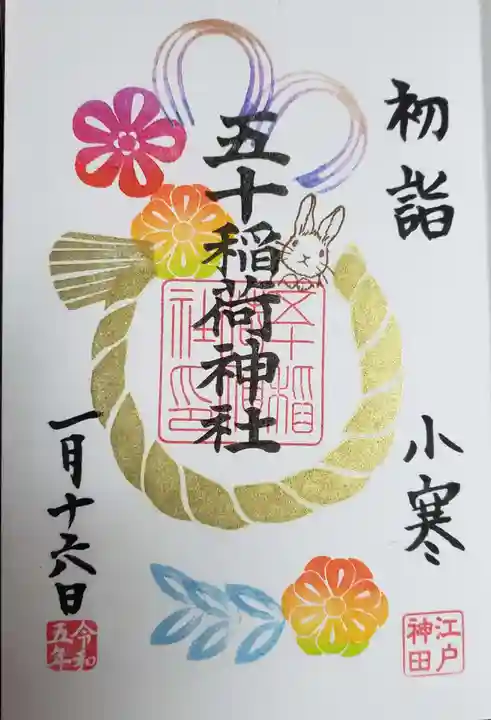 初詣
小寒
江戸
神田
五十稲荷神社
一月十六日
令和
五年